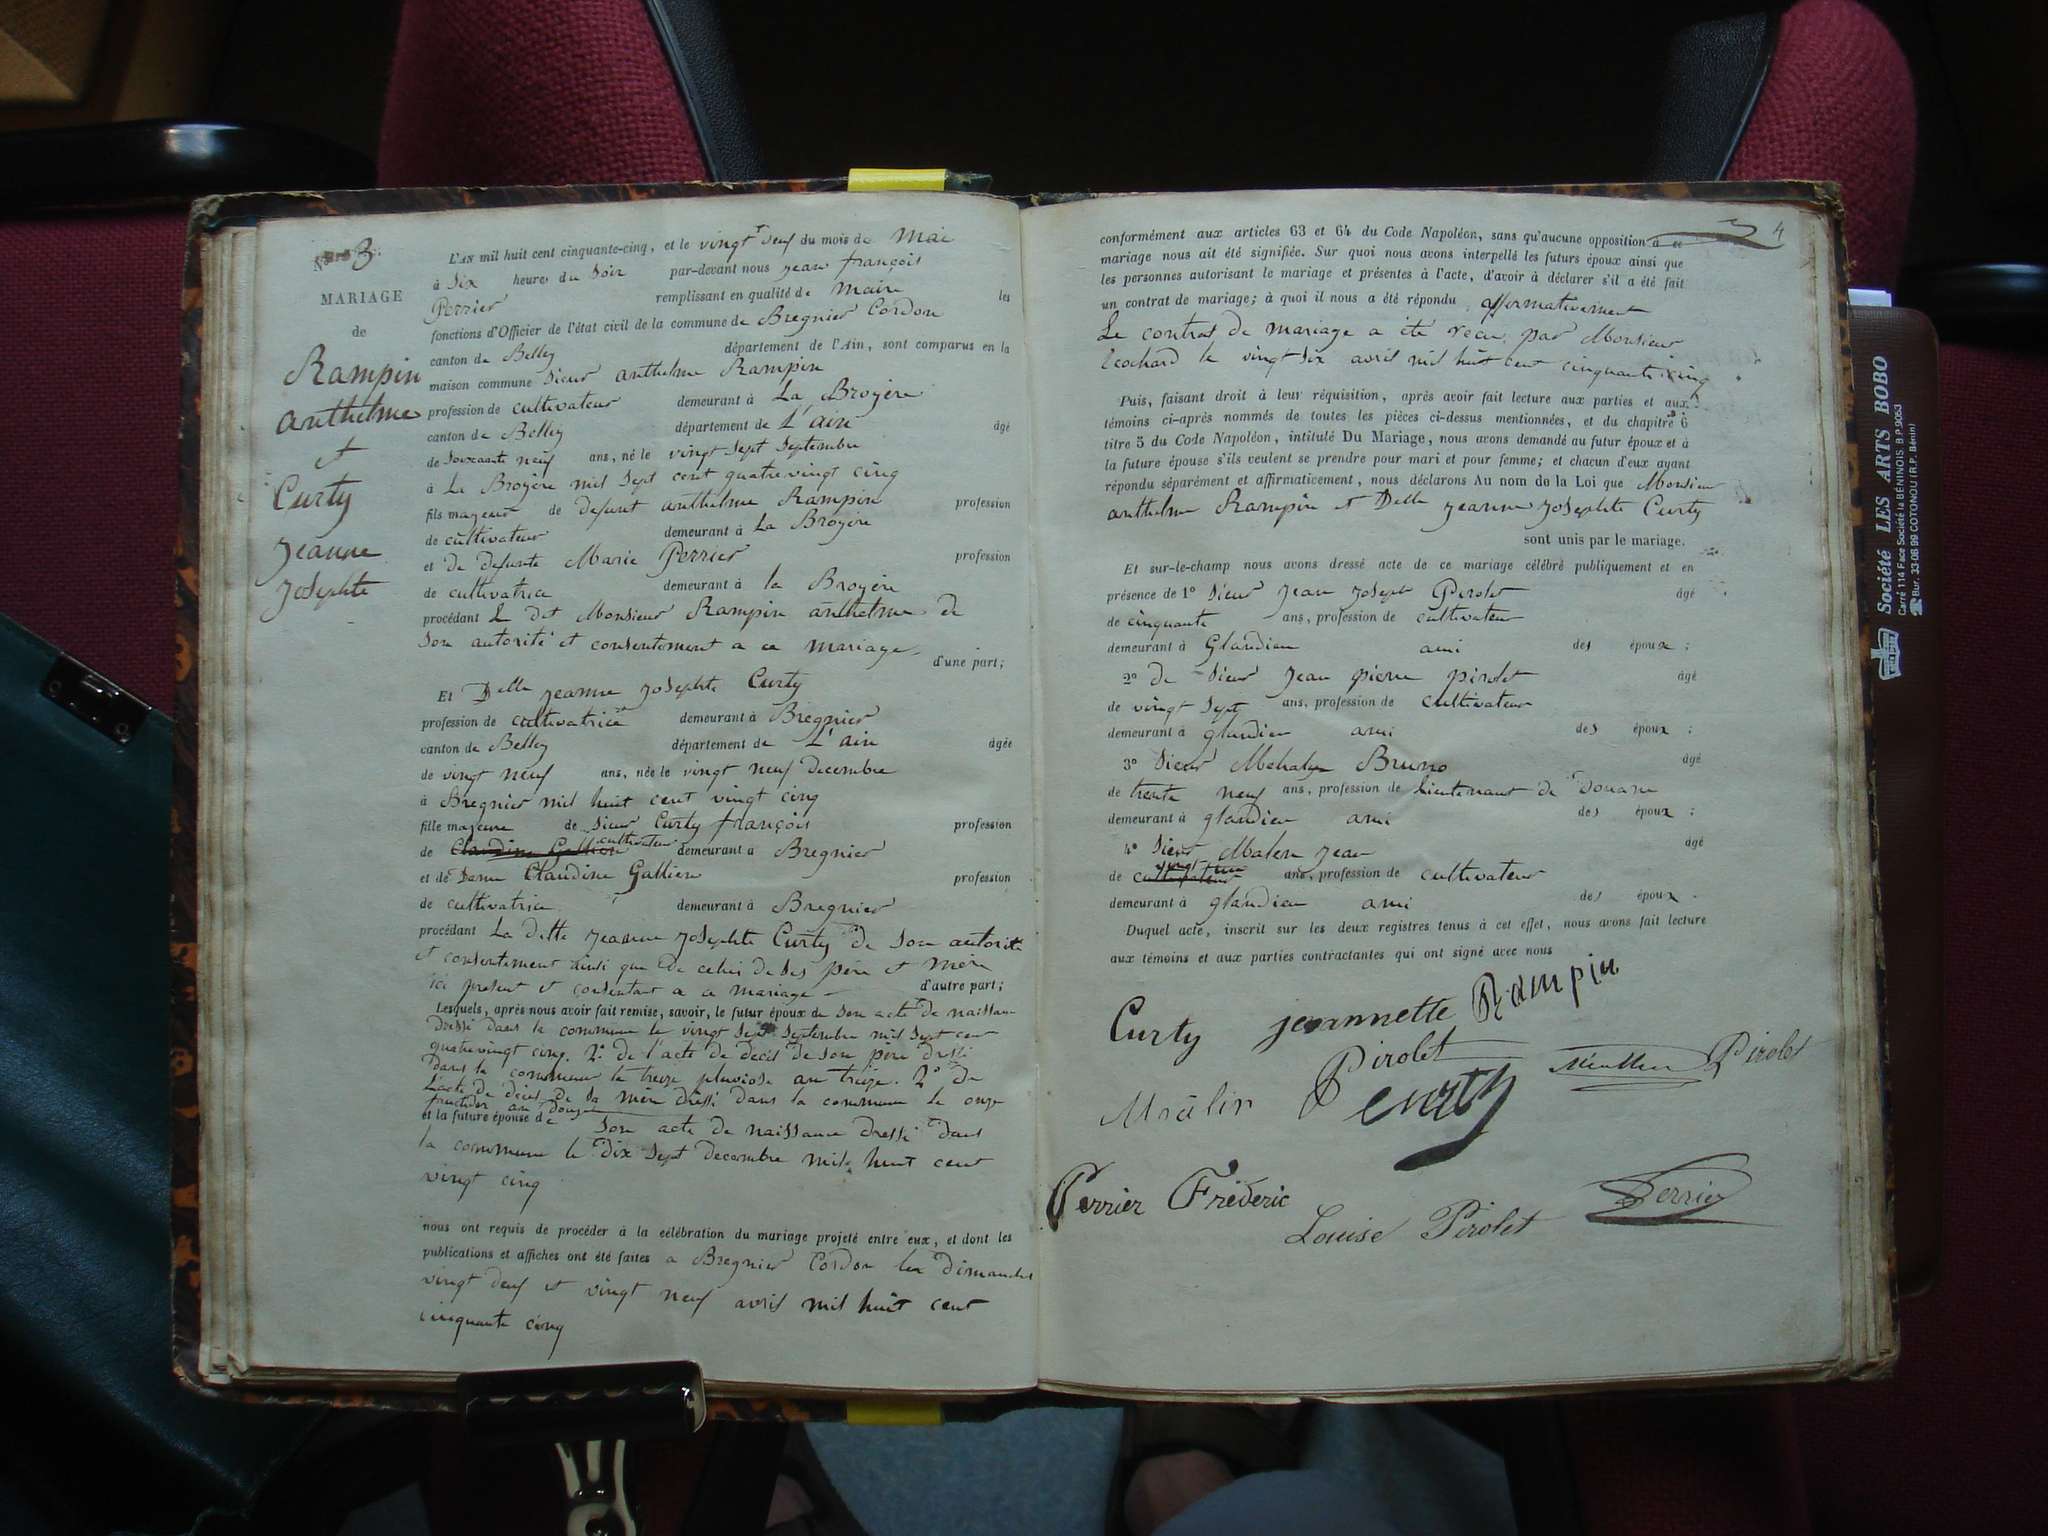 N° 3
MARIAGE
de
Rampin
anthelme
et
Curty
Jeanne
Josephte
L'AN mil huit cent cinquante-cinq, et le vingt neuf du mois de Mai
à Six heures du Soir par-devant nous Jean françois
Perrier remplissant en qualité de Maire les
fonctions d'Officier de l'état civil de la commune de Bregnier Cordon
canton de Belley département de l'Ain, sont comparus en la
maison commune Sieur anthelme Rampin
profession de cultivateur demeurant à La Broyère
canton de Belley département de L'ain âgé
de Soixante neuf ans, né le vingt Sept Septembre
à La Broyère mil Sept cent quatrevingt cinq
fils majeur de defunt anthelme Rampin profession
de cultivateur demeurant à La Broyère
et de defunte Marie Perrier profession
de cultivatrice demeurant à la Broyère
procédant Le dit Monsieur Rampin anthelme de
Son autorité et consentement a ce mariage d'une part;
Et Delle Jeanne Josephte Curty
profession de cultivatrice demeurant à Bregnier
canton de Belley département de L'ain âgée
de vingt neuf ans, née le vingt neuf decembre
à Bregnier mil huit cent vingt cinq
fille majeure de Sieur Curty françois profession
de Claudine Gallien cultivateur demeurant à Bregnier
et de Dame Claudine Gallien profession
de cultivatrice demeurant à Bregnier
procédant La ditte Jeanne Josephte Curty de Son autorité
et consentement ainsi que de celui de Ses père et mère
ici present et consentant a ce mariage d'autre part;
Lesquels, après nous avoir fait remise, savoir, le futur époux de Son acte de naissance
dressé dans la commune le vingt Sept Septembre mil Sept cent
quatrevingt cinq. 2° de l'acte de décès de Son père dressé
Dans la commune le treize pluviose an treize. 2° de
L'acte de décès de Sa mère dressé dans la commune le onze
fructidor an douze
et la future épouse de Son acte de naissance dressé dans
la commune le dix Sept decembre mil huit cent
vingt cinq
nous ont requis de procéder à la célébration du mariage projeté entre eux, et dont les
publications et affiches ont été faites a Bregnier Cordon les Dimanches
vingt deux et vingt neuf avril mil huit cent
cinquante cinq
4
conformément aux articles 63 et 64 du Code Napoléon, sans qu'aucune opposition à ce
mariage nous ait été signifiée. Sur quoi nous avons interpellé les futurs époux ainsi que
les personnes autorisant le mariage et présentes à l'acte, d'avoir à déclarer s'il a été fait
un contrat de mariage; à quoi il nous a été répondu affirmativement
Le contrat de mariage a été recu par Monsieur
Ecochard le vingt Six avril mil huit cent cinquante cinq
Puis, faisant droit à leur réquisition, après avoir fait lecture aux parties et aux
témoins ci-après nommés de toutes les pièces ci-dessus mentionnées, et du chapitre 6
titre 5 du Code Napoléon, intitulé Du Mariage, nous avons demandé au futur époux et à
la future épouse s'ils veulent se prendre pour mari et pour femme; et chacun d'eux ayant
répondu séparément et affirmativement, nous déclarons Au nom de la Loi que Monsieur
anthelme Rampin et Delle Jeanne Josephte Curty
sont unis par le mariage.
Et sur-le-champ nous avons dressé acte de ce mariage célébré publiquement et en
présence de 1° Sieur Jean Joseph Pirolet âgé
de cinquante ans, profession de cultivateur
demeurant à Glandieu ami des époux;
2° de Sieur Jean pierre pirolet âgé
de vingt Sept ans, profession de cultivateur
demeurant à glandieu ami des époux;
3° Sieur Bruno âgé
de trente neuf ans, profession de Lieutenant de Douane
demeurant à glandieu ami des époux;
4° Sieur Malen Jean âgé
de cultivateur vingt ans, profession de cultivateur
demeurant à glandieu ami des époux.
Duquel acte, inscrit sur les deux registres tenus à cet effet, nous avons fait lecture
aux témoins et aux parties contractantes qui ont signé avec nous
Curty jeannette Rampin
Pirolet Pirolet
Malin curty
Perrier Fréderic
Louise Pirolet Perrier
Société LES ARTS BOBO
Carré 114 Face Société la BÉNINOIS B.P. 9053
Bur. 33-06 99 COTONOU (R.P. Bénin)